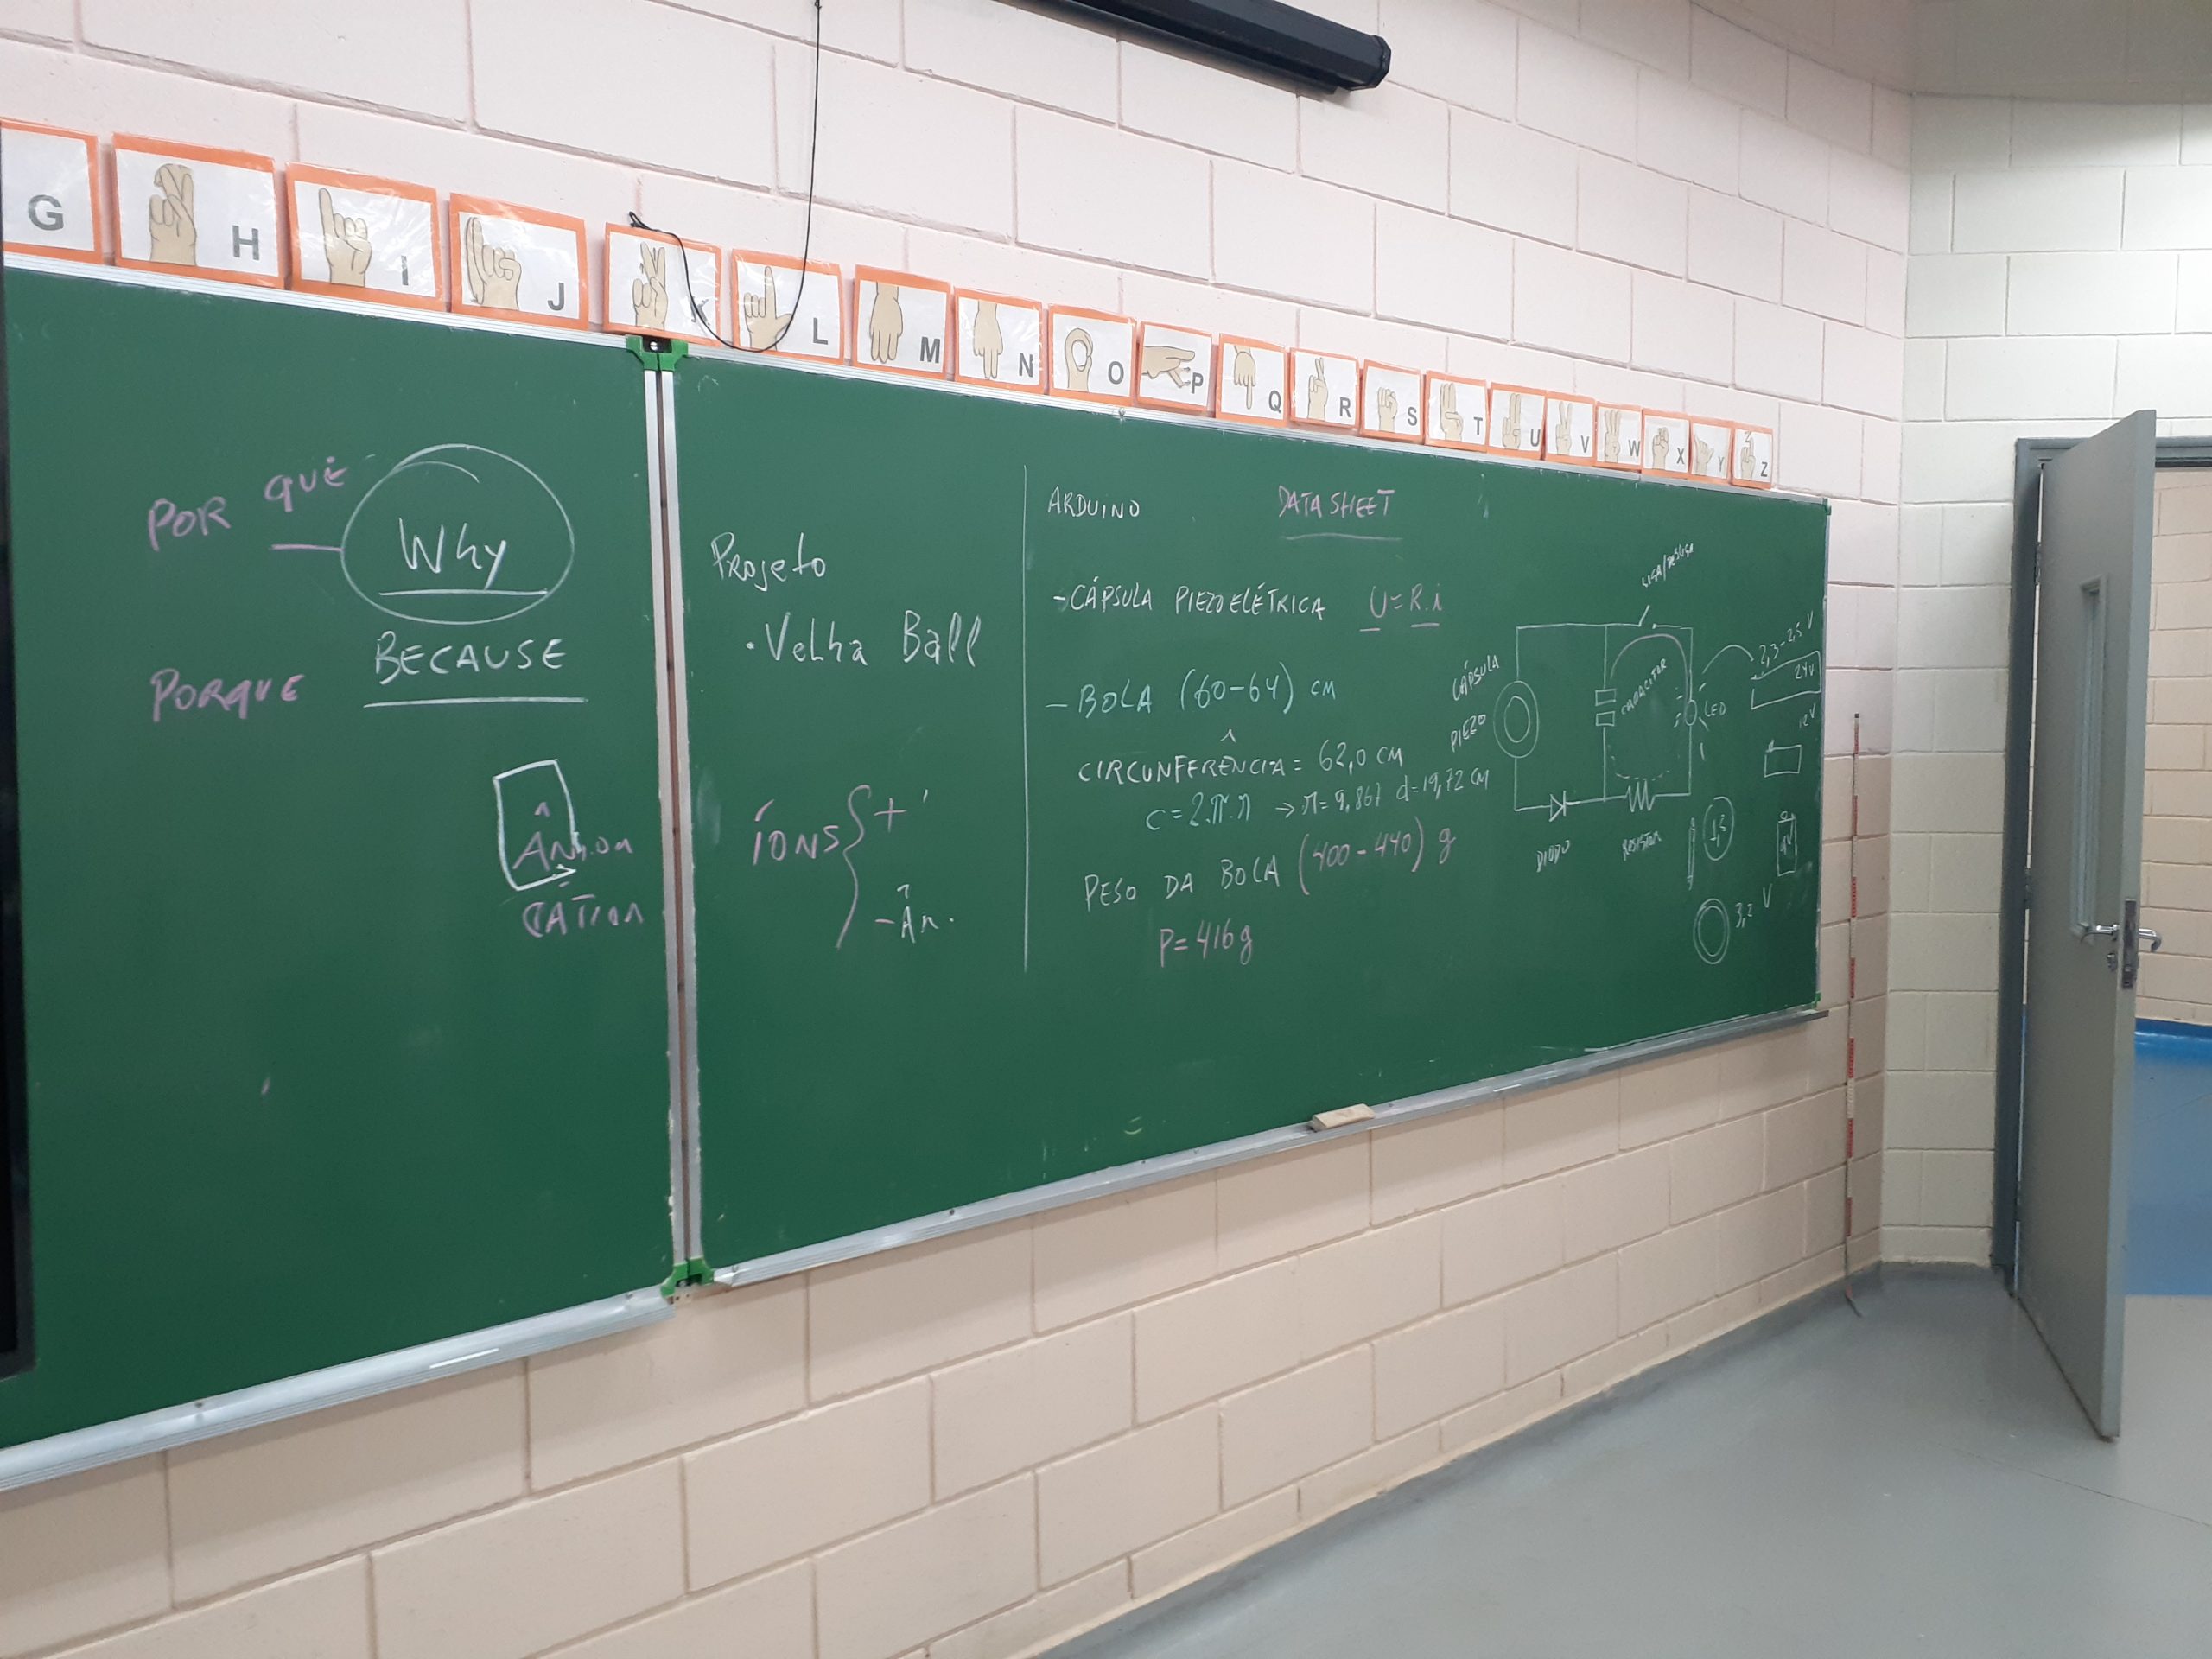 G H I J K L M N O P Q R S T U V W X Y Z
POR QUÊ
Why
BECAUSE
PORQUE
ÂNion
CÁTION
Projeto
• Velha Ball
ÍONS { +
- Ân.
ARDUINO
DATA SHEET
- CÁPSULA PIEZOELÉTRICA U = R.i
- BOLA (60-64) CM
CIRCUNFERÊNCIA = 62,0 CM
C = 2.π.r → r = 9,867 d = 19,72 CM
PESO DA BOLA (400-440) g
P = 416g
LIGA/DESLIGA
CÁPSULA
PIEZO
CAPACITOR
LED
DIODO
RESISTOR
2,3-2,5 V
24V
12V
1,5
9V
3,2 V